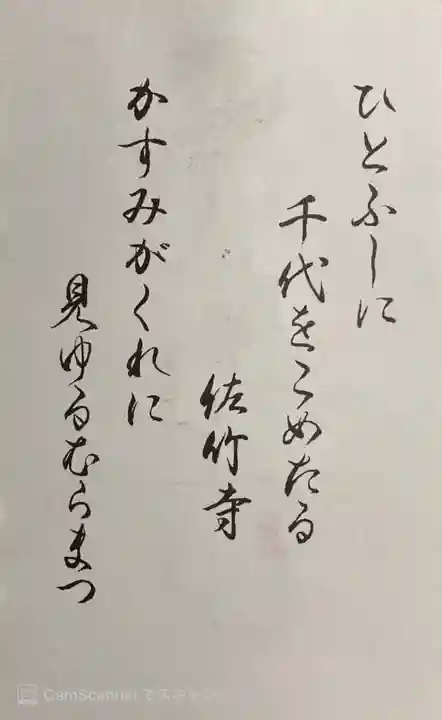 ひとふしに
千代をこめたる
佐竹寺
かすみがくれに
見ゆるむらまつ
CamScanner でスキャン